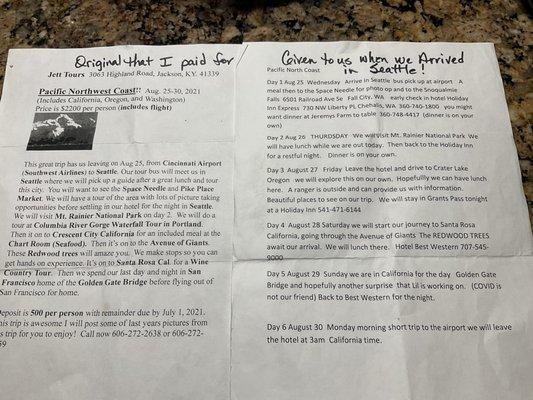 Original that I paid for
Jett Tours 3063 Highland Road, Jackson, KY. 41339
Pacific Northwest Coast!! Aug. 25-30, 2021
(Includes California, Oregon, and Washington)
Price is $2200 per person (includes flight)
This great trip has us leaving on Aug 25, from Cincinnati Airport
(Southwest Airlines) to Seattle. Our tour bus will meet us in
Seattle where we will pick up a guide after a great lunch and tour
this city. You will want to see the Space Needle and Pike Place
Market. We will have a tour of the area with lots of picture taking
opportunities before settling in our hotel for the night in Seattle.
We will visit Mt. Rainier National Park on day 2. We will do a
tour at Columbia River Gorge Waterfall Tour in Portland.
Then it on to Crescent City California for an included meal at the
Chart Room (Seafood). Then it's on to the Avenue of Giants.
These Redwood trees will amaze you. We make stops so you can
get hands on experience. It's on to Santa Rosa Cal. for a Wine
Country Tour. Then we spend our last day and night in San
Francisco home of the Golden Gate Bridge before flying out of
San Francisco for home.
Deposit is 500 per person with remainder due by July 1, 2021.
this trip is awesome I will post some of last years pictures from
is trip for you to enjoy! Call now 606-272-2638 or 606-272-
59
Given to us when we Arrived
in Seattle!
Pacific North Coast
Day 1 Aug 25 Wednesday Arrive in Seattle bus pick up at airport A
meal then to the Space Needle for photo op and to the Snoqualmie
Falls 6501 Railroad Ave Se Fall City, WA early check in hotel Holiday
Inn Express 730 NW Liberty PL Chehalis, WA 360-740-1800 you might
want dinner at Jeremys Farm to table 360-748-4417 (dinner is on your
own)
Day 2 Aug 26 THURDSDAY We will visit Mt. Rainier National Park We
will have lunch while we are out today. Then back to the Holiday Inn
for a restful night. Dinner is on your own.
Day 3 August 27 Friday Leave the hotel and drive to Crater Lake
Oregon we will explore this on our own. Hopefully we can have lunch
here. A ranger is outside and can provide us with information.
Beautiful places to see on our trip. We will stay in Grants Pass tonight
at a Holiday Inn 541-471-6144
Day 4 August 28 Saturday we will start our journey to Santa Rosa
California, going through the Avenue of Giants The REDWOOD TREES
await our arrival. We will lunch there. Hotel Best Western 707-545-
9000
Day 5 August 29 Sunday we are in California for the day Golden Gate
Bridge and hopefully another surprise that Lil is working on. (COVID is
not our friend) Back to Best Western for the night.
Day 6 August 30 Monday morning short trip to the airport we will leave
the hotel at 3am California time.